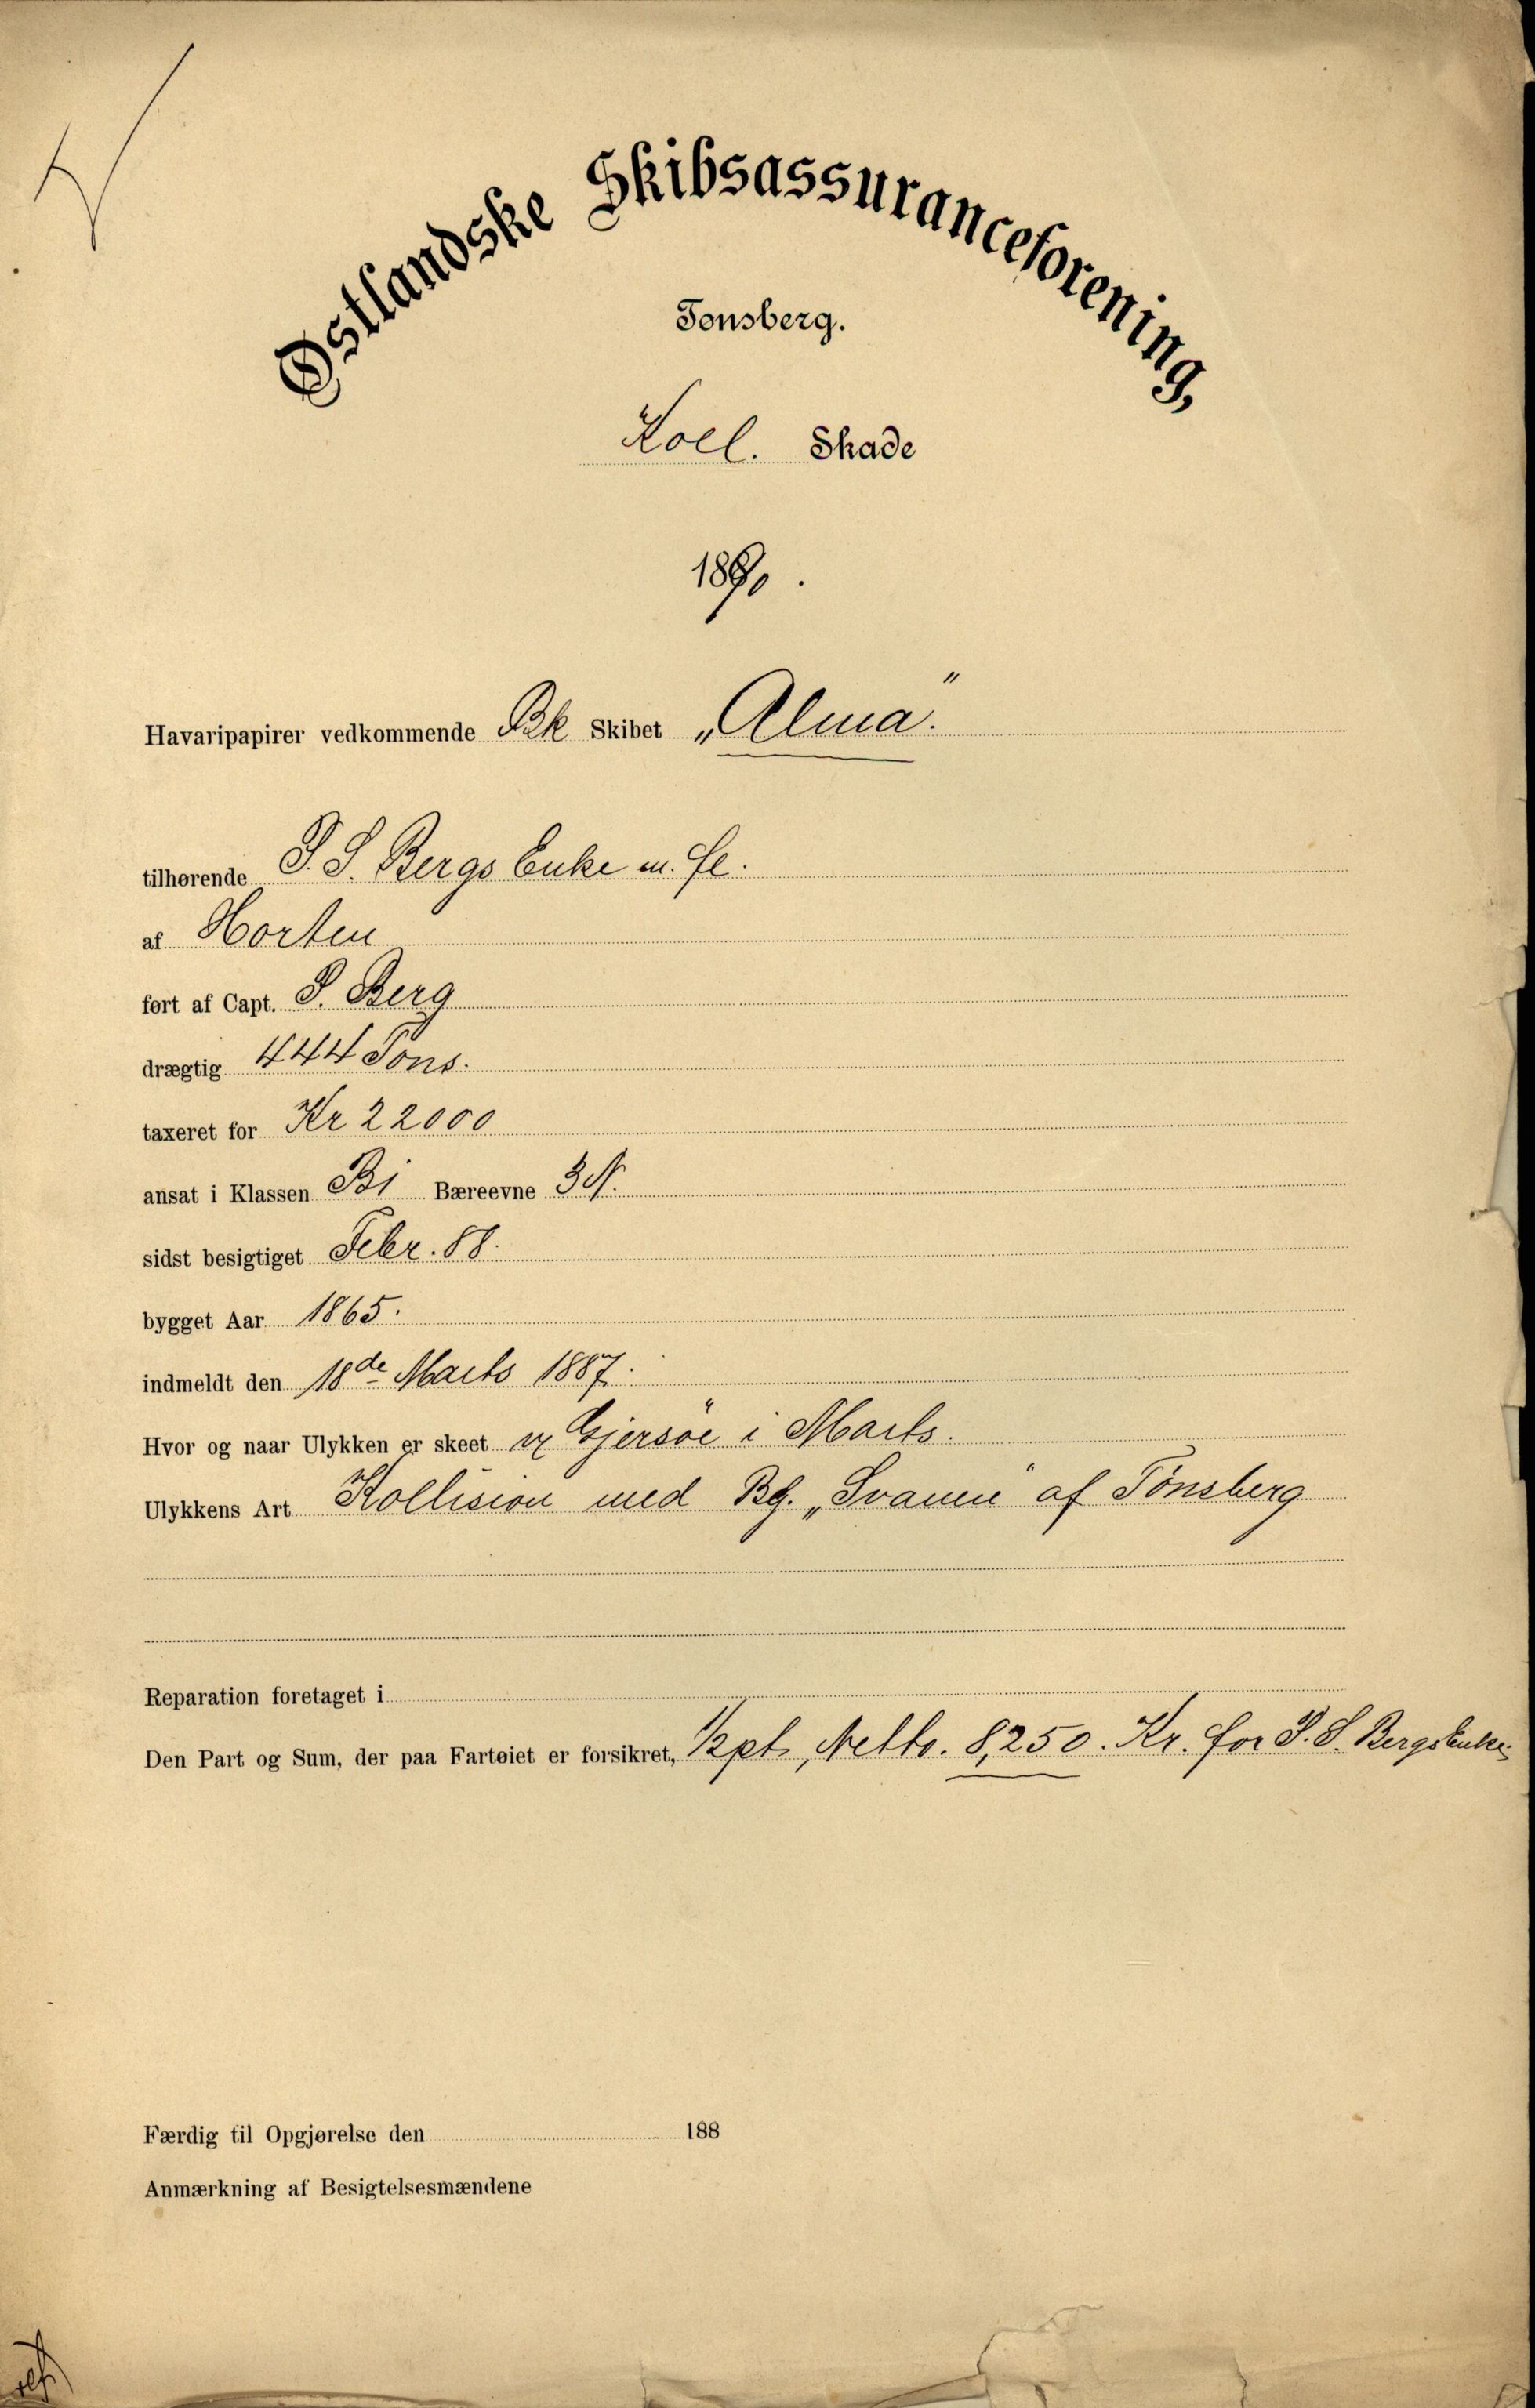 Østlandske Skibsassuranceforening,
Tønsberg.
Koll. Skade
1890.
Havaripapirer vedkommende Bk Skibet „Alma".
tilhørende S. S. Bergs Enke m. fl.
af Horten
ført af Capt. S. Berg
drægtig 444 Tons.
taxeret for Kr 22000
ansat i Klassen B1 Bæreevne 3 N.
sidst besigtiget Febr. 88.
bygget Aar 1865.
indmeldt den 18de Marts 1887.
Hvor og naar Ulykken er skeet v/ Gjersöe i Marts.
Ulykkens Art Kollision med Bg. „Svanen" af Tönsberg
Reparation foretaget i
Den Part og Sum, der paa Fartøiet er forsikret, 1/2 pt., Netto. 8,250. Kr. for S. S. Bergs Enke.
Færdig til Opgjørelse den 188
Anmærkning af Besigtelsesmændene